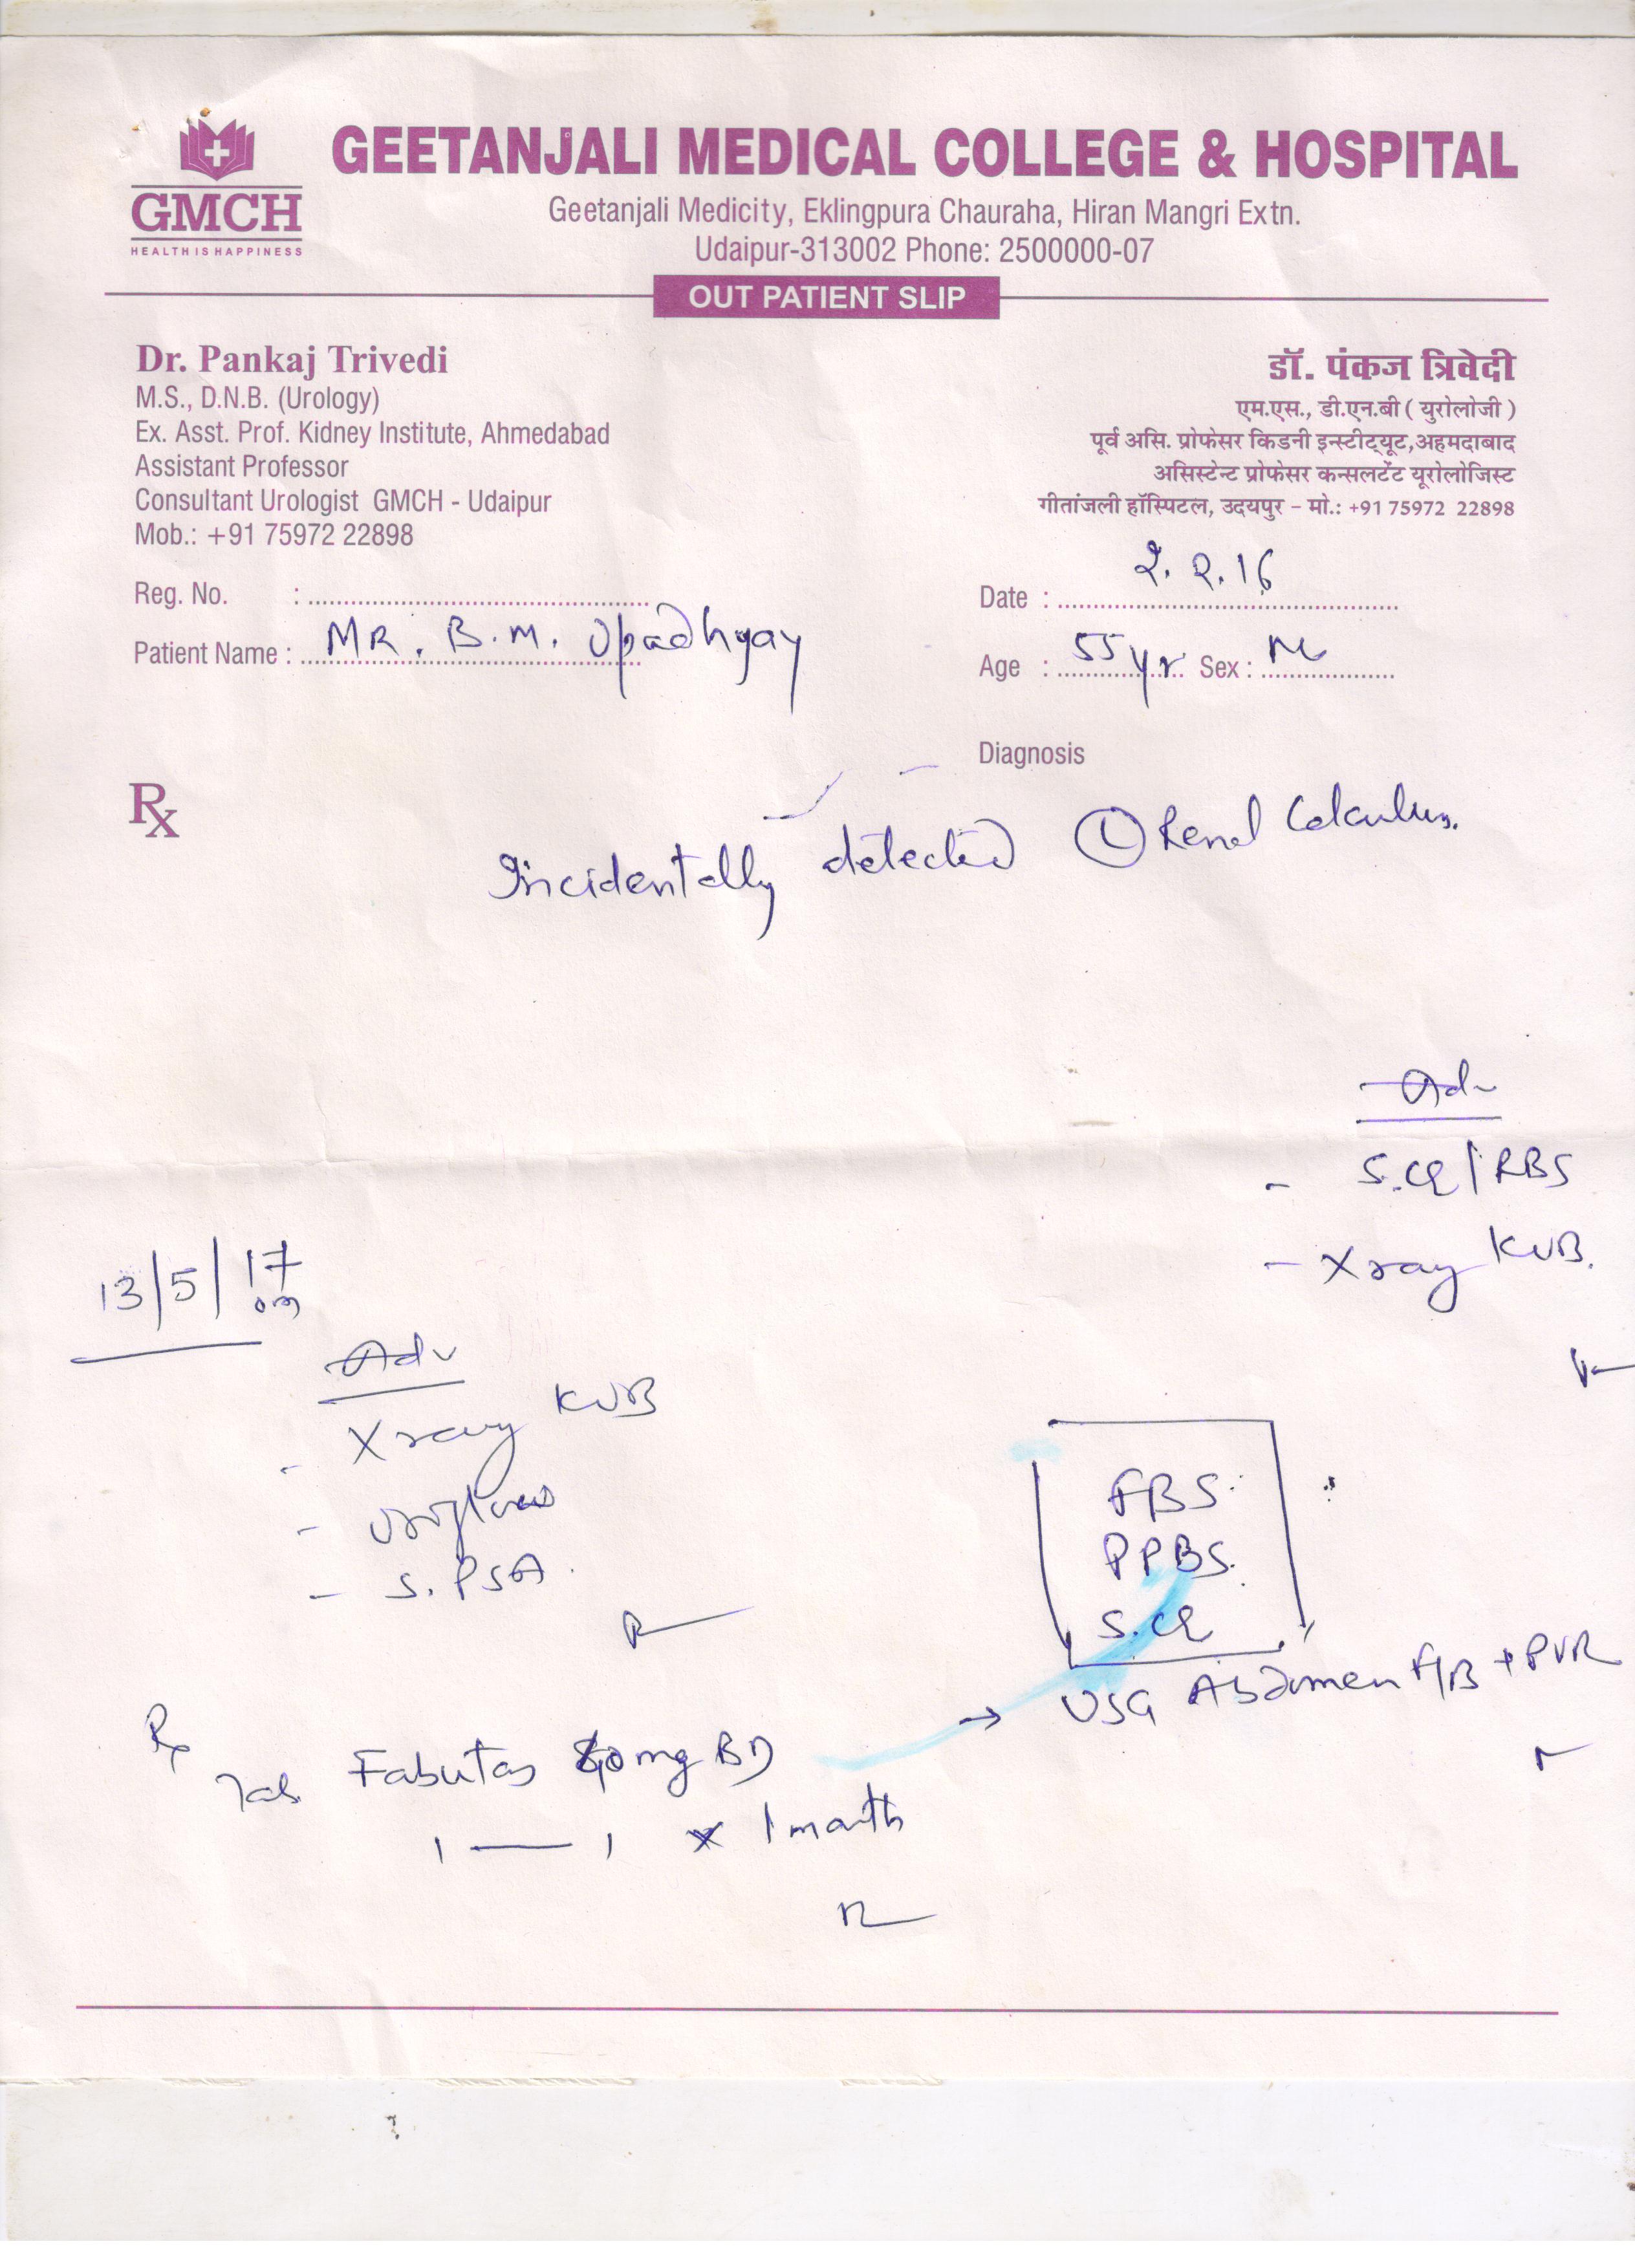 GEETANJALI MEDICAL COLLEGE & HOSPITAL
GMCH
HEALTH IS HAPPINESS
Geetanjali Medicity, Eklingpura Chauraha, Hiran Mangri Extn.
Udaipur-313002 Phone: 2500000-07
OUT PATIENT SLIP
Dr. Pankaj Trivedi
M.S., D.N.B. (Urology)
Ex. Asst. Prof. Kidney Institute, Ahmedabad
Assistant Professor
Consultant Urologist GMCH - Udaipur
Mob.: +91 75972 22898
डॉ. पंकज त्रिवेदी
एम.एस., डी.एन.बी ( युरोलोजी )
पूर्व असि. प्रोफेसर किडनी इन्स्टीट्यूट,अहमदाबाद
असिस्टेन्ट प्रोफेसर कन्सलटेंट यूरोलोजिस्ट
गीतांजली हॉस्पिटल, उदयपुर - मो.: +91 75972 22898
Reg. No. :
Date : 2.2.16
Patient Name : MR. B.M. Upadhyay
Age : 55 yr Sex : M
Diagnosis
Rx
Incidentally detected (L) Renal Calculus.
Adv
- S.CR / RBS
- Xray KUB.
13/5/17
Adv
- Xray KUB
- Uroflow
- S. PSA.
FBS
PPBS.
S.CR
→ USG Abdomen F/B + PVR
Rx
Tab. Fabutas mg BD
1 — 1 x 1 month